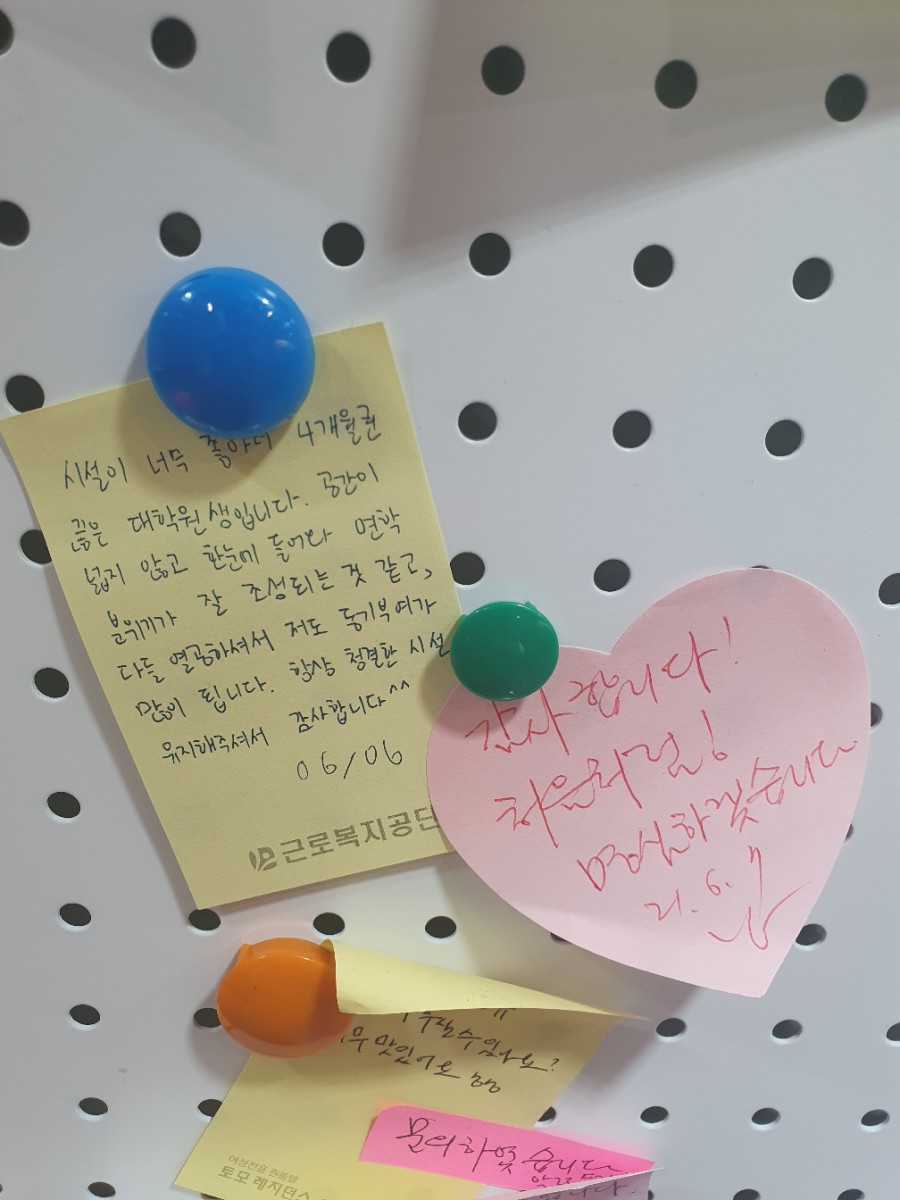 시설이 너무 좋아서 4개월권
끊은 대학원생입니다. 공간이
넓지 않고 한눈에 들어와 면학
분위기가 잘 조성되는 것 같고,
다들 열공하셔서 저도 동기부여가
많이 됩니다. 항상 청결한 시설
유지해주셔서 감사합니다^^
06/06
근로복지공단
감사합니다!
처음처럼!
명심하겠습니다
21. 6.
주실수있나요?
맛있어요
여성전용 원룸텔
토모 레지던스
문의하였습니다